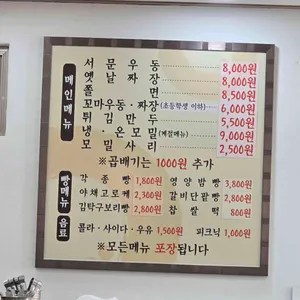 메인메뉴
서문우동 8,000원
옛날짜장 8,000원
쫄면 8,500원
꼬마우동·짜장(초등학생 이하) 6,000원
튀김만두 5,500원
냉·온모밀(계절메뉴) 9,000원
모밀사리 2,500원
※곱배기는 1000원 추가
빵메뉴
각종빵 1,800원 영양밤빵 3,800원
야채고로케 2,300원 갈비단팥빵 2,800원
김탁구보리빵 2,800원 찹쌀떡 800원
음료
콜라·사이다·우유 1,500원 피크닉 1,000원
※모든메뉴 포장됩니다